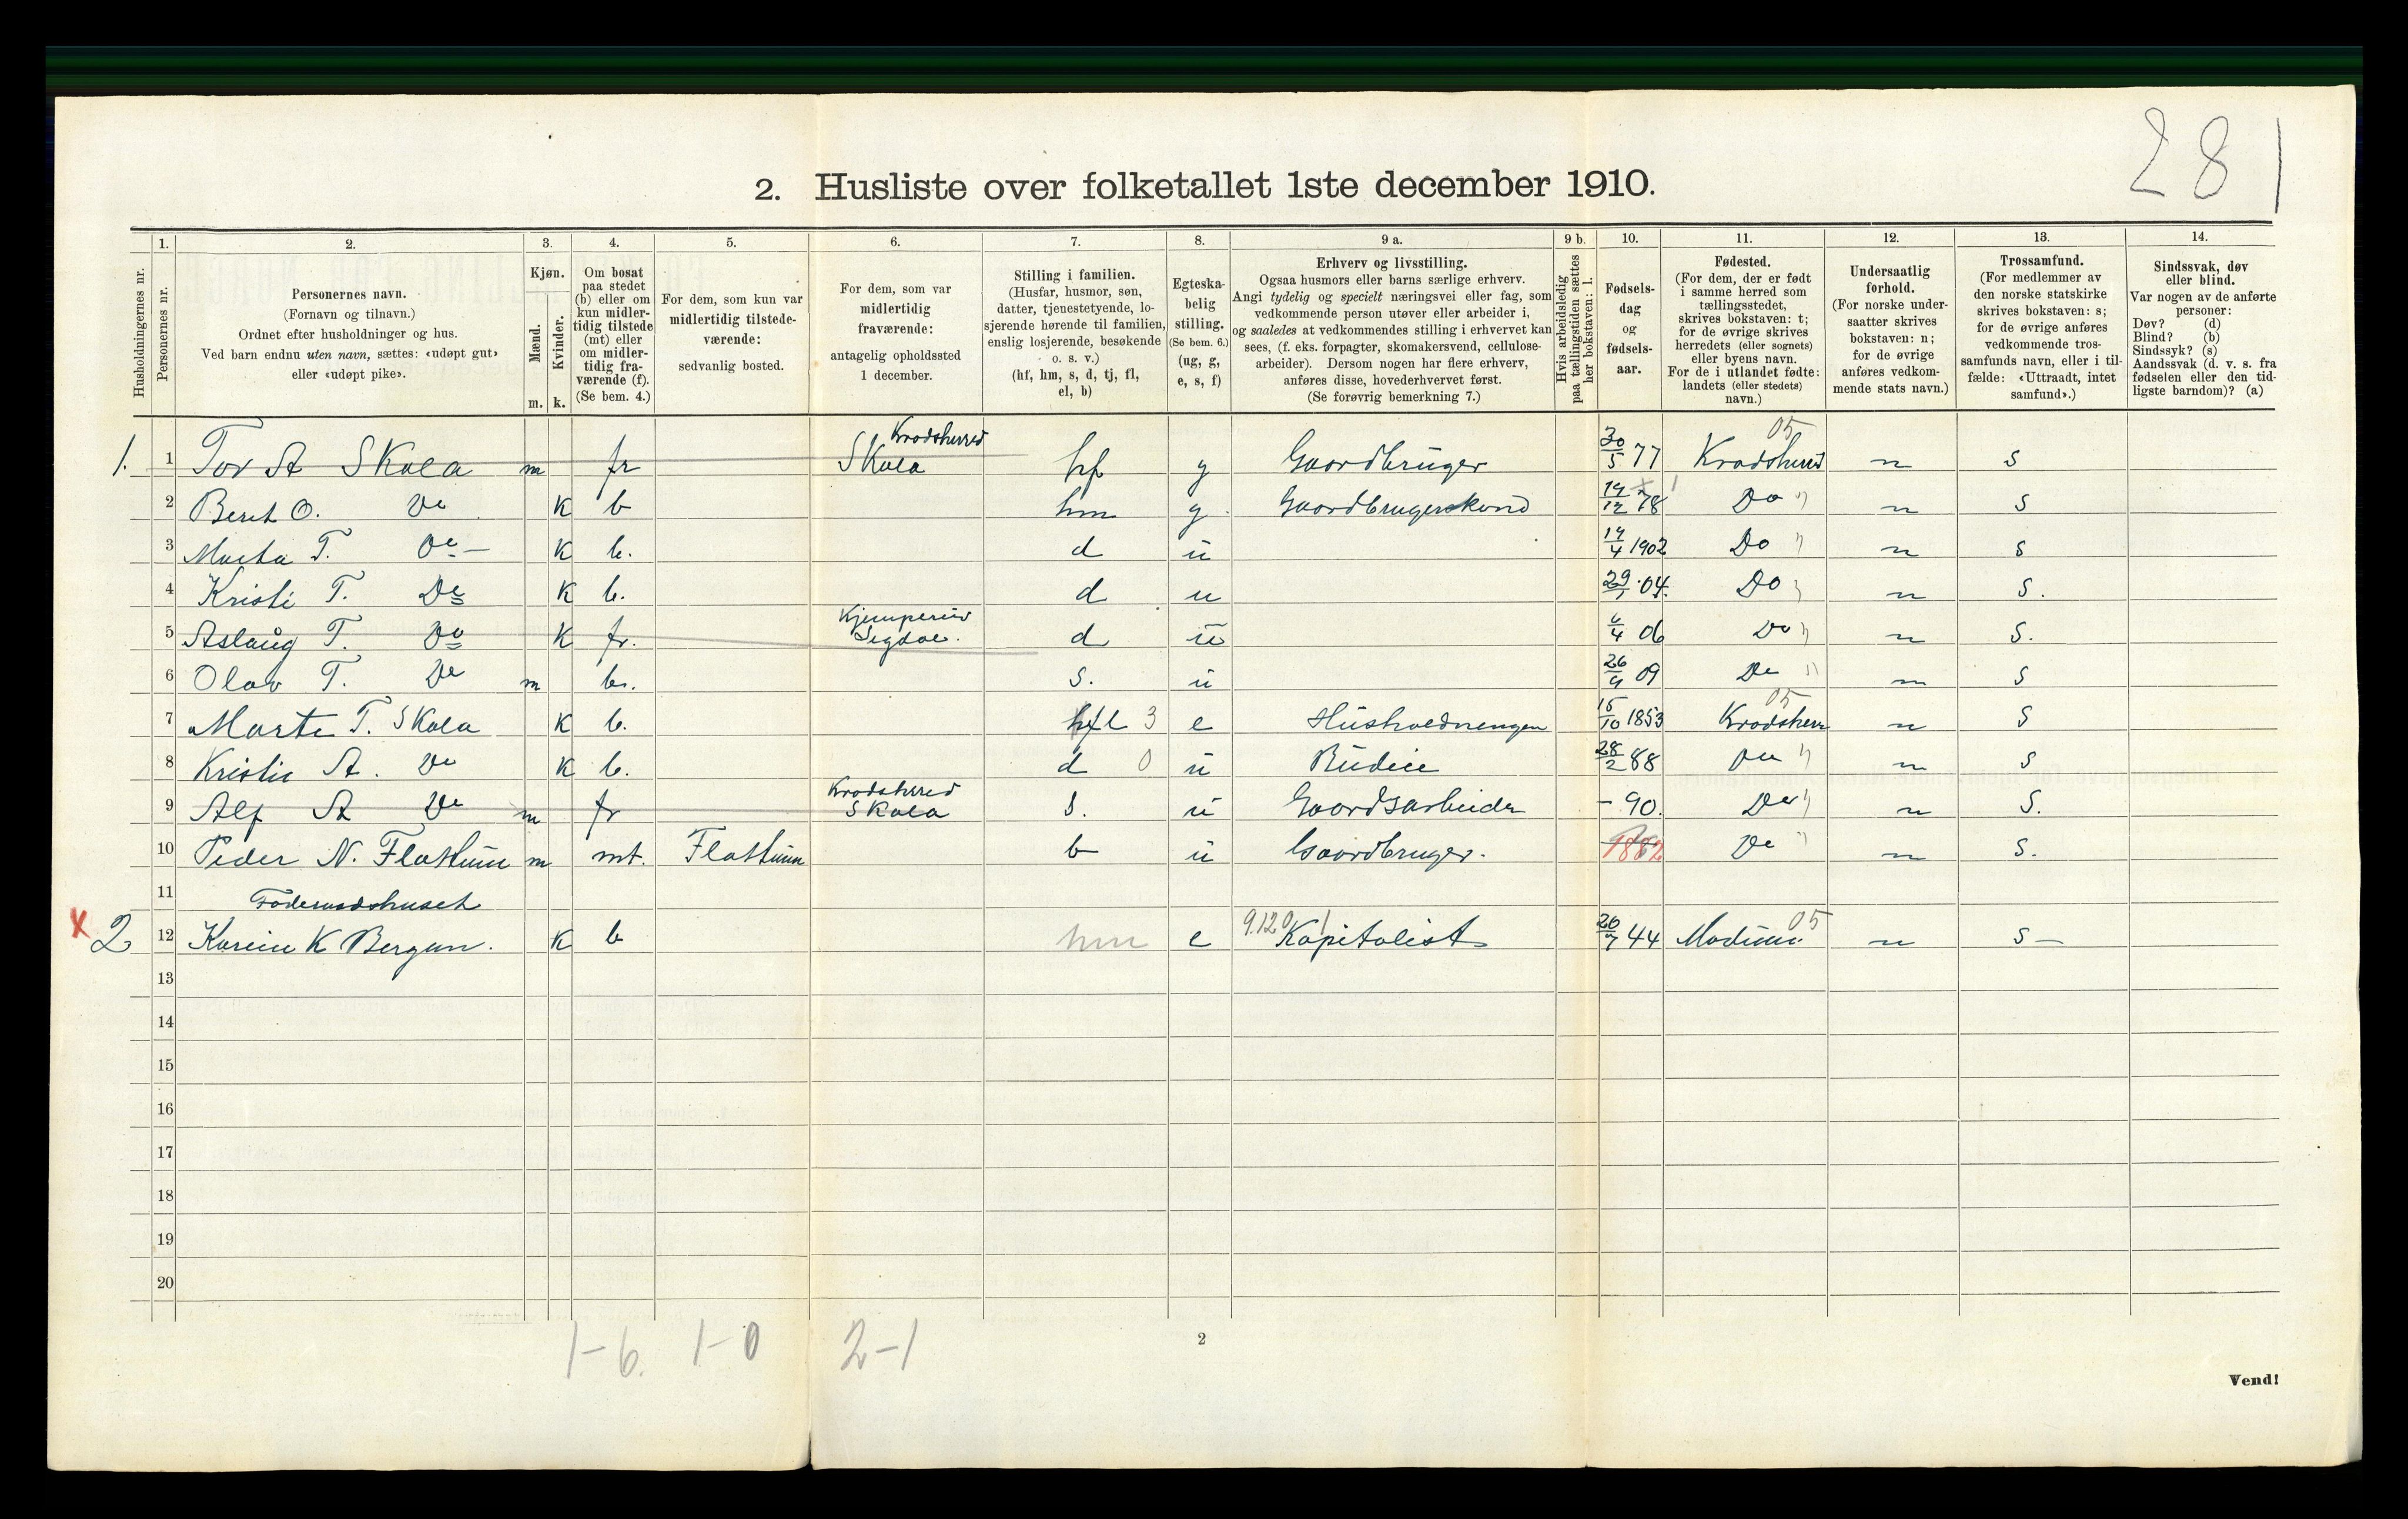 281
2. Husliste over folketallet 1ste december 1910.
Husholdningernes nr.
1.
Personernes nr.
2.
Personernes navn.
(Fornavn og tilnavn.)
Ordnet efter husholdninger og hus.
Ved barn endnu uten navn, sættes: «udøpt gut»
eller «udøpt pike».
3.
Kjøn.
Mænd.
Kvinder.
m. k.
4.
Om bosat
paa stedet
(b) eller om
kun midler-
tidig tilstede
(mt) eller
om midler-
tidig fra-
værende (f).
(Se bem. 4.)
5.
For dem, som kun var
midlertidig tilstede-
værende:
sedvanlig bosted.
6.
For dem, som var
midlertidig
fraværende:
antagelig opholdssted
1 december.
7.
Stilling i familien.
(Husfar, husmor, søn,
datter, tjenestetyende, lo-
sjerende hørende til familien,
enslig losjerende, besøkende
o. s. v.)
(hf, hm, s, d, tj, fl,
el, b)
8.
Egteska-
belig
stilling.
(Se bem. 6.)
(ug, g,
e, s, f)
9 a.
Erhverv og livsstilling.
Ogsaa husmors eller barns særlige erhverv.
Angi tydelig og specielt næringsvei eller fag, som
vedkommende person utøver eller arbeider i,
og saaledes at vedkommendes stilling i erhvervet kan
sees, (f. eks. forpagter, skomakersvend, cellulose-
arbeider). Dersom nogen har flere erhverv,
anføres disse, hovederhvervet først.
(Se forøvrig bemerkning 7.)
9 b.
Hvis arbeidsledig
paa tællingstiden sættes
her bokstaven: l.
10.
Fødsels-
dag
og
fødsels-
aar.
11.
Fødested.
(For dem, der er født
i samme herred som
tællingsstedet,
skrives bokstaven: t;
for de øvrige skrives
herredets (eller sognets)
eller byens navn.
For de i utlandet fødte:
landets (eller stedets)
navn.)
12.
Undersaatlig
forhold.
(For norske under-
saatter skrives
bokstaven: n;
for de øvrige
anføres vedkom-
mende stats navn.)
13.
Trossamfund.
(For medlemmer av
den norske statskirke
skrives bokstaven: s;
for de øvrige anføres
vedkommende tros-
samfunds navn, eller i til-
fælde: «Uttraadt, intet
samfund».)
14.
Sindssvak, døv
eller blind.
Var nogen av de anførte
personer:
Døv? (d)
Blind? (b)
Sindssyk? (s)
Aandssvak (d. v. s. fra
fødselen eller den tid-
ligste barndom)? (a)
1. 1 Tor A Skala m fr Krodsherred Skala hf g Gaardbruger 30/5 77 Krodsherred 05 n s
2 Berit O. Do K b hm g Gaardbrugerskone 14/12 78 Do " n s
3 Marta T. Do — K b. d u 14/4 1902 Do " n s
4 Kristi T. Do K b. d u 29/1 04. Do " n s.
5 Aslaug T. Do K fr. Sigdal. d u 6/4 06 Do " n s.
6 Olav T. Do m b. s. u 26/9 09 Do " n s
7 Marte T. Skala K b. fl 3 e 15/10 1853 05 n s
8 Kristie A. Do K b. d 0 u Budeie 28/2 88 Do " n s
9 Alf A Do m fr Krodsherred Skala s. u Gaardsarbeider - 90. Do " n s.
10 Peder N. Flattum m mt. Flattum b u Gaardbruger. 1882 Do " n s.
11 Föderaadshuset
x 2 12 Karine K Bergan. K b hm e 9.120 1 Kapitalist 20/7 44 Modum. 05 n s —
13
14
15
16
17
18
19
20
1-6. 1-0 2-1
2
Vend!